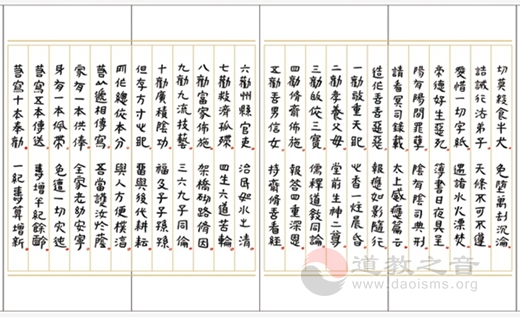 切莫餐食牛犬　免墮萬劫沉淪
誥誡行法弟子　天條不可不遵
愛惜一切字紙　遏諸水火漂焚
帝德好生惡死　簿書日夜具呈
陽有陽間罪孽　陰有陰司典刑
請看冥司錄載　太上感應篇云
造化善善惡惡　報應如影隨行
一勸敬重天地　心香一炷晨昏
二勸孝養父母　堂前生神二尊
三勸皈依三寶　儒釋道教同論
四勸脩齋佈施　報答四重深恩
五勸善男信女　持齋脩善看經
六勸州縣官吏　治民如水之清
七勸救濟孤　四生六道苦輪
八勸富家佈施　架橋砌路脩因
九勸九流技藝　三六九子同倫
十勸廣積陰功　福及子子孫孫
但存方寸之地　留與後代耕耘
所作總依本分　與人方便樸淳
遞相傳寫　吾當護汝於蔭
家有一本供俸　全家老幼安寧
身有一本佩帶　免遭一切灾迍
善寫五本傳送　壽增半紀餘齡
善寫十本奉勸　一紀壽算增新
道教之音
www.daoisms.org